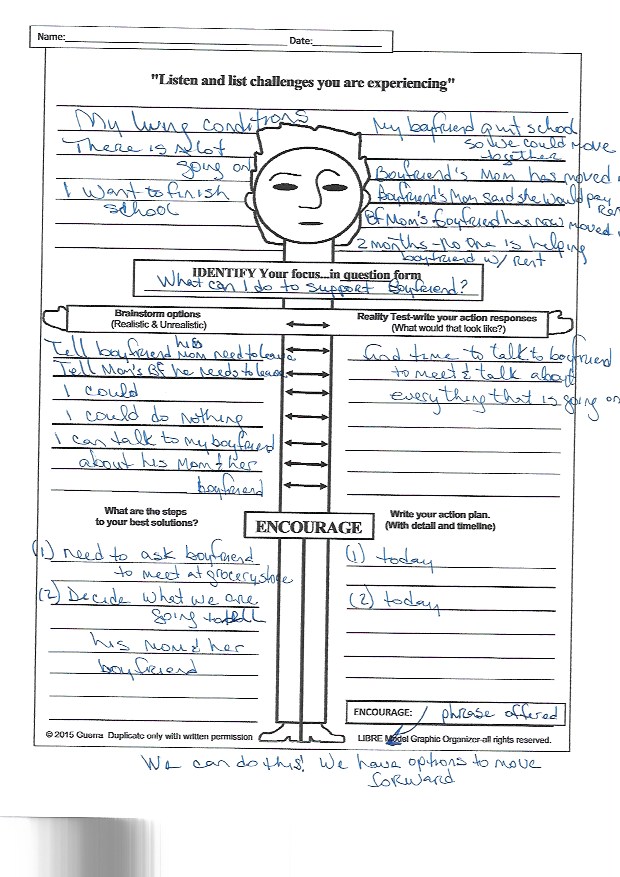 Name:
Date:
"Listen and list challenges you are experiencing"
My living conditions
There is alot
going on
I want to finish
school
My boyfriend quit school
so we could move
together
Boyfriend's Mom has moved
Boyfriend's Mom said she would pay
Rent
BF Mom's boyfriend has now moved
2 months - no one is helping
boyfriend w/ rent
IDENTIFY Your focus...in question form
What can I do to support Boyfriend?
Brainstorm options
(Realistic & Unrealistic)
Reality Test-write your action responses
(What would that look like?)
Tell boyfriend his Mom need to leave
Tell Mom's BF he needs to leave
I could
I could do nothing
I can talk to my boyfriend
about his Mom & her
boyfriend
find time to talk to boyfriend
to meet & talk about
everything that is going on
What are the steps
to your best solutions?
ENCOURAGE
Write your action plan.
(With detail and timeline)
(1) need to ask boyfriend
to meet at grocery store
(2) Decide what we are
going to tell
his mom & her
boyfriend
(1) today
(2) today
ENCOURAGE: phrase offered
© 2015 Guerra Duplicate only with written permission
LIBRE Model Graphic Organizer-all rights reserved.
We can do this! We have options to move
forward